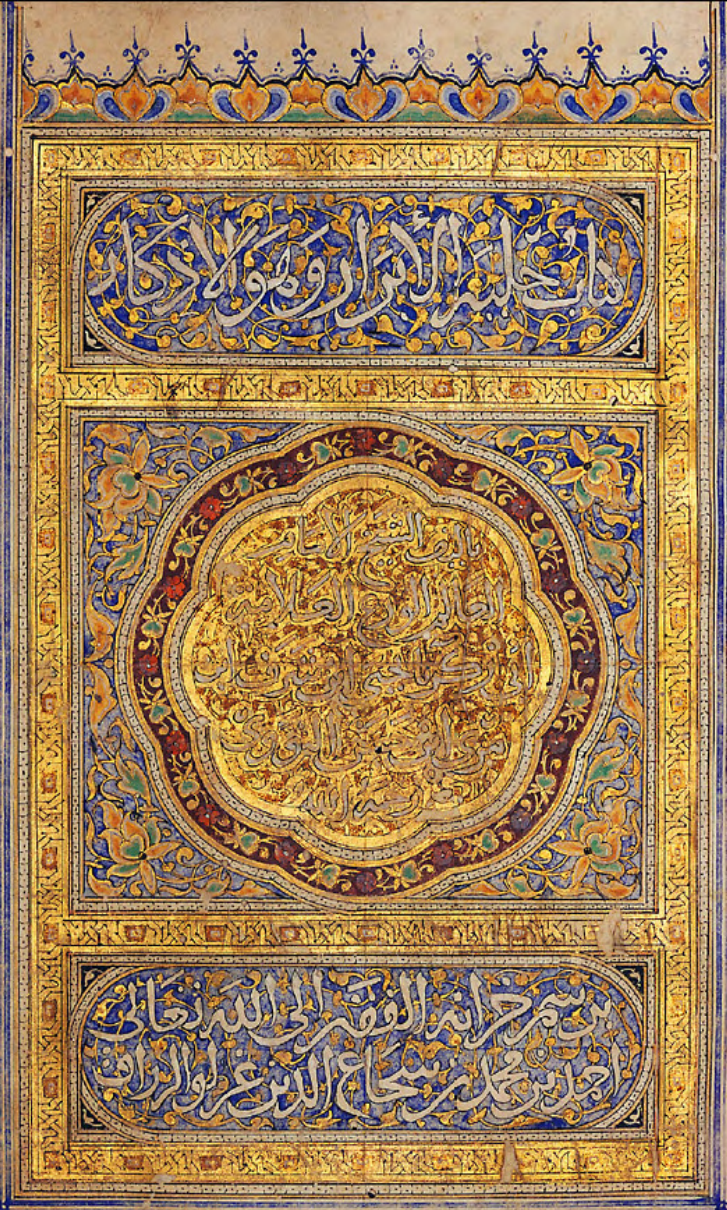 كتاب حلية الأبرار وهو الاذكار
تاليف الشيخ الامام
العالم الورع العلامة
ابى زكريا يحيى ابن شرف ابن
مرى ابن حسن النووى
رحمه الله
برسم خزانة الفقير الى الله تعالى
احمد بن محمد بن شجاع الدين